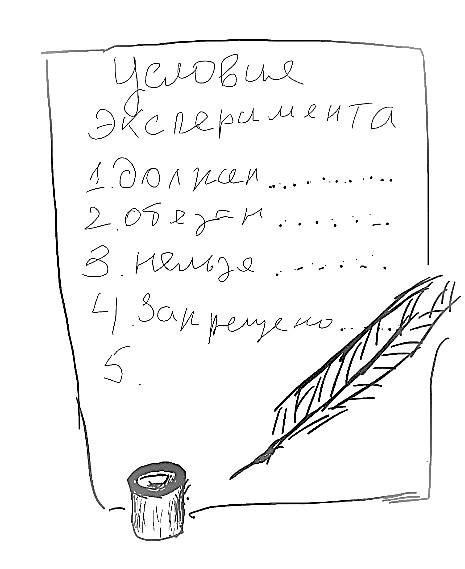 Условие
эксперимента
1. Должен............
2. обезан.......
3. нельзя.......
4. Запрещено.....
5.